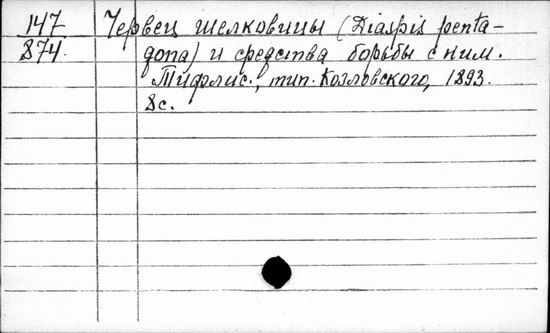 147 Червец шелковицы (Diaspis penta-
874. gona) и средства борьбы с ним.
Тифлис., тип. Козловского, 1893.
8с.